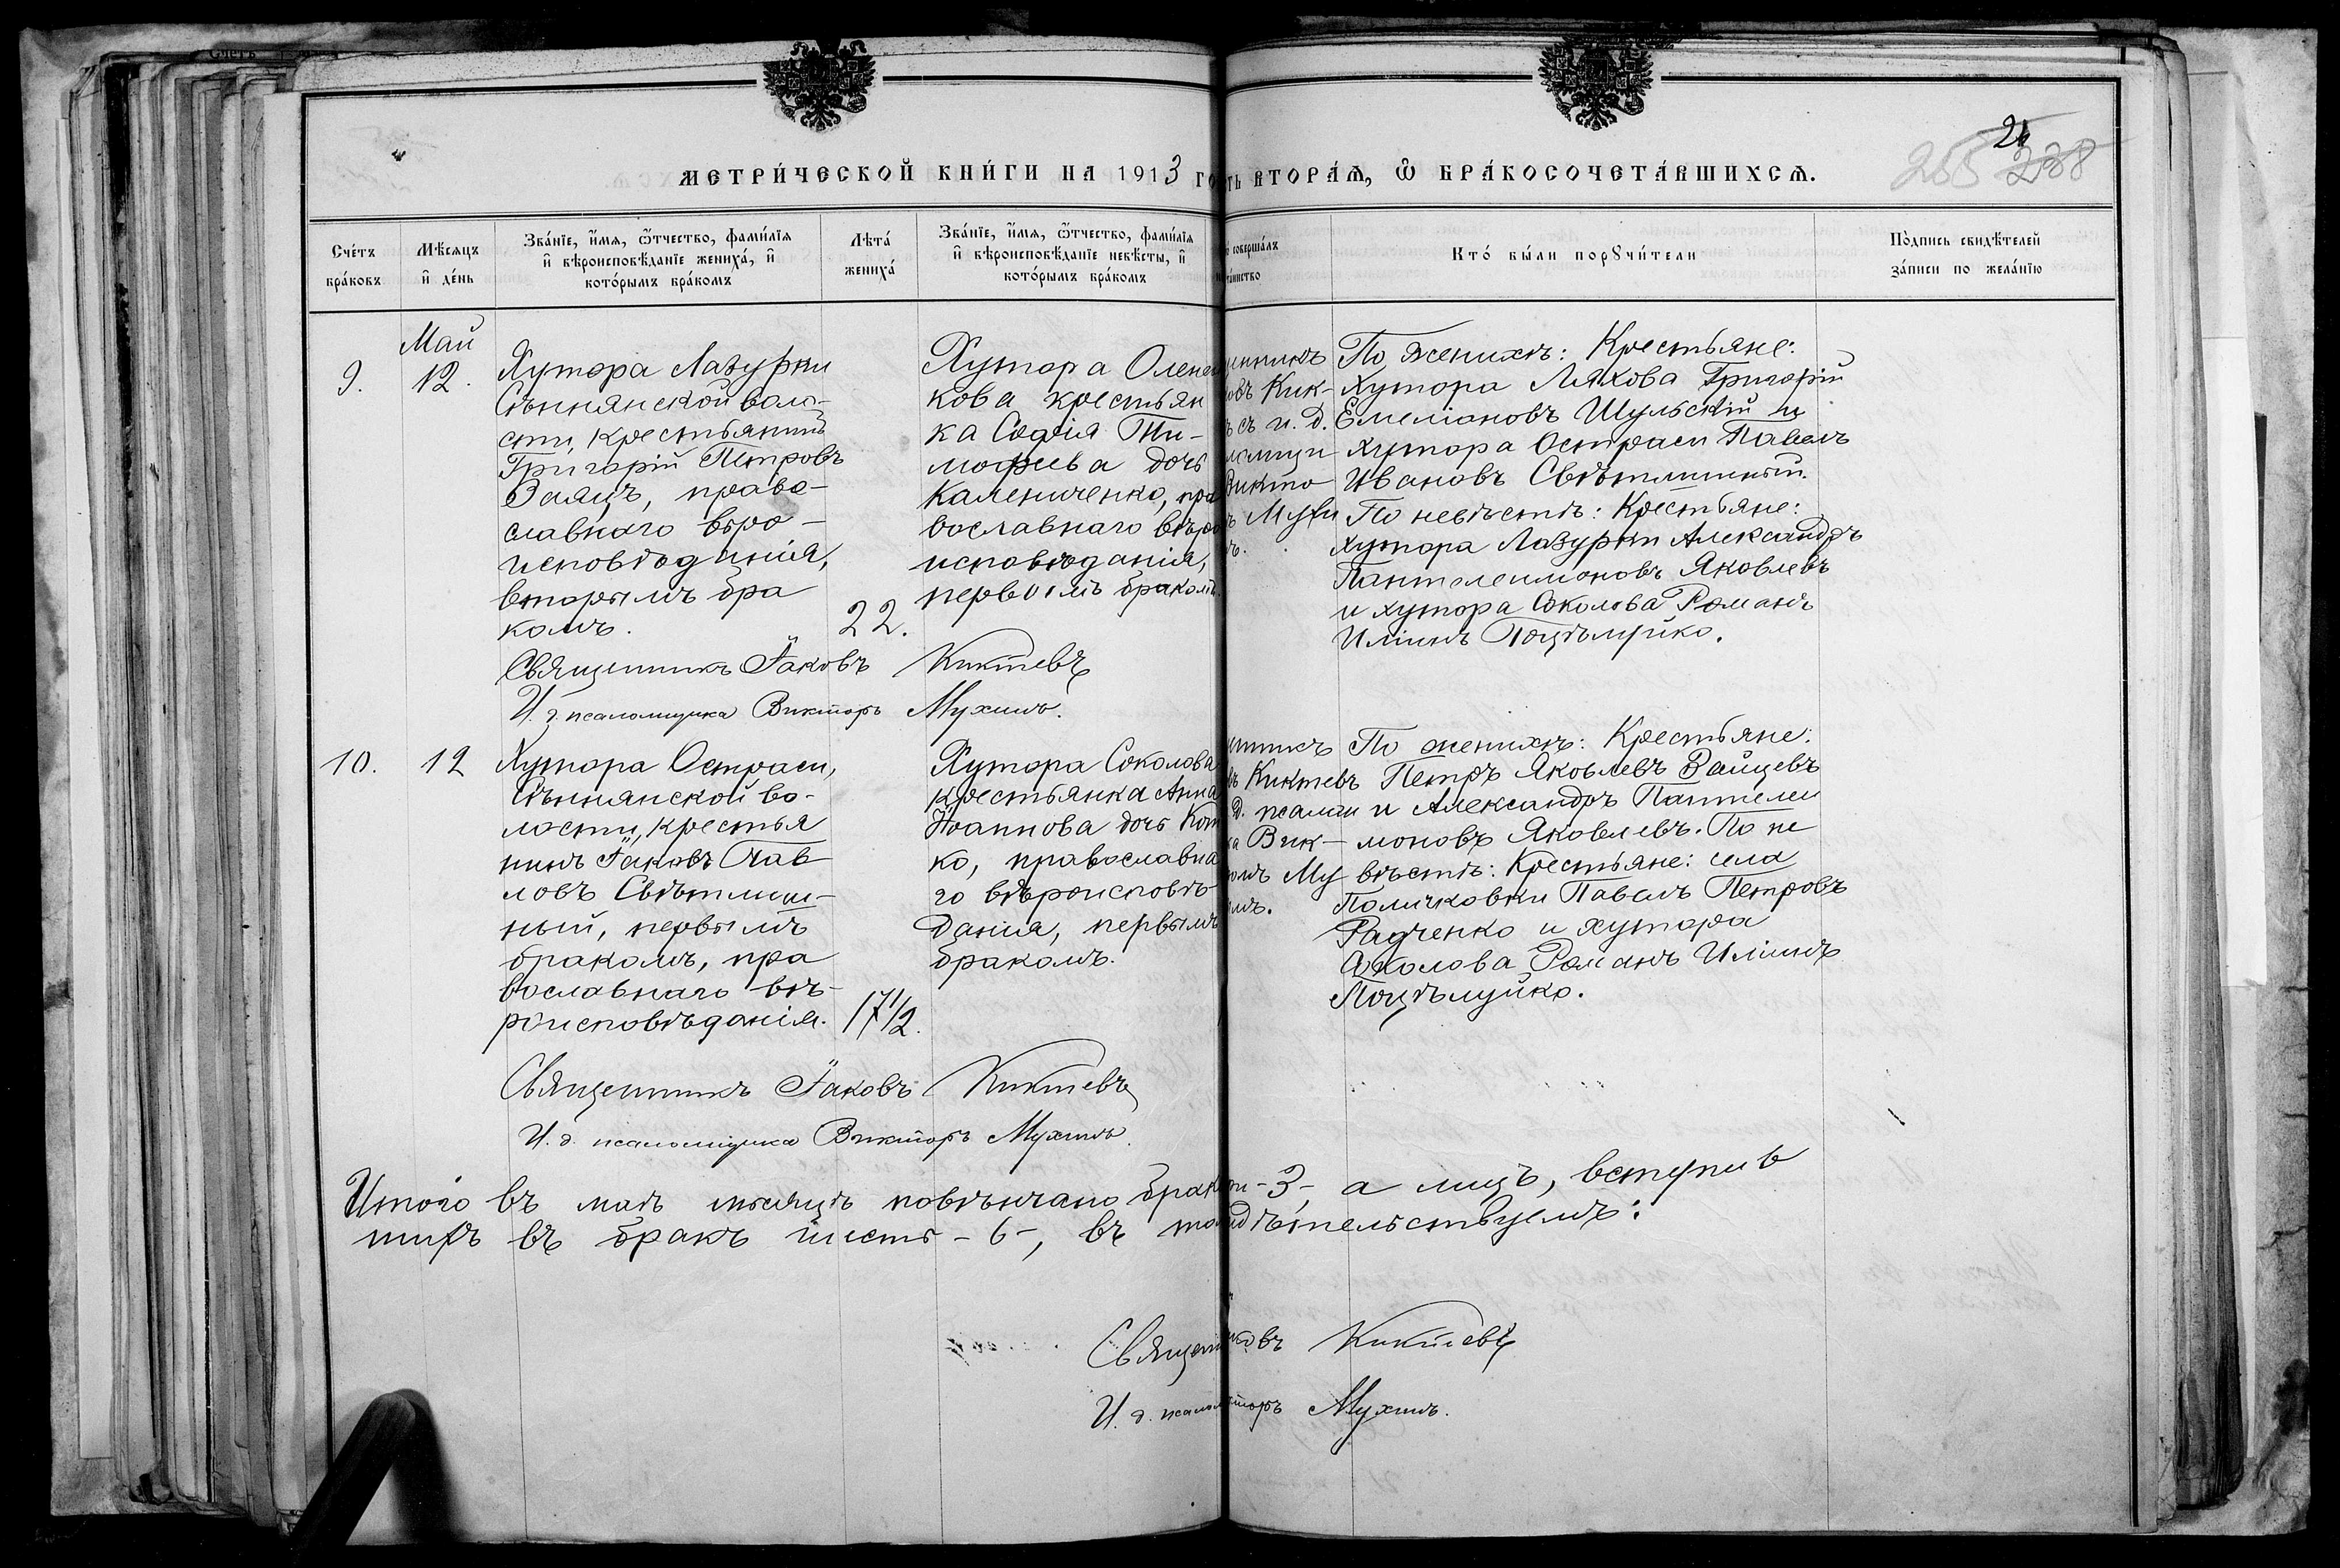 21
255 238
МЕТРИ́ЧЕСКОЙ КНИ́ГИ НА 1913 ГО
ТЬ ВТОРА́Ѧ, Ѽ БРА́КОСОЧЕТА́ВШИХСѦ.
Сче́тъ
бра́ковъ
Мѣ́сяцъ
и҆ де́нь
Зва́нїе, и҆́мя, ѻ҆́тчество, фами́лїя
и҆ вѣроисповѣ́данїе жениха́, и҆
кото́рымъ бра́комъ
Лѣта́
жениха́
Зва́нїе, и҆́мя, ѻ҆́тчество, фами́лїя
и҆ вѣроисповѣ́данїе невѣ́сты, и҆
кото́рымъ бра́комъ
совершáлъ
таинство
Кто́ бы́ли порꙋчи́тели
По́дпись свидѣ́телей
за́писи по жела́нїю
9.
Май
12.
Хутора Лазурки
Сѣннянской воло-
сти, крестьянинъ
Григорій Петровъ
Заяцъ, право-
славнаго вѣро-
исповѣданія,
вторымъ бра
комъ.
22.
Хутора Олен
кова крестьян
ка Софія Ти-
мофѣева дочь
Калениченко, пра
вославнаго вѣро
исповѣданія,
первымъ бракомъ.
Кик-
съ и. д.
Викто
Мухи
По женихѣ: Крестьяне:
Хутора Ляхова Григорій
Емеліановъ Шульскій и
хутора Остраси Павелъ
Ивановъ Свѣтличный.
По невѣстѣ: Крестьяне:
Хутора Лазурки Александръ
Пантелеимоновъ Яковлевъ
и хутора Соколова Романъ
Иліинъ Поцѣлуйко.
Священникъ Іаковъ Киктевъ
И. д. псаломщика Викторъ Мухинъ.
10.
12
Хутора Остраси,
Сѣннянской во-
лости, крестья
нинъ Іаковъ Пав
ловъ Свѣтлич-
ный, первымъ
бракомъ, пра
вославнаго вѣ-
роисповѣданія.
17 1/2.
Хутора Соколова
крестьянка Анна
Іоаннова дочь Кот
ко, православна
го вѣроисповѣ-
данія, первымъ
бракомъ.
Киктевъ
Д. псалом
Вик-
Му
По женихѣ: Крестьяне:
Петръ Яковлевъ Зайцевъ
и Александръ Пантелеи
моновъ Яковлевъ. По не
вѣстѣ: Крестьяне: села
Поличковки Павелъ Петровъ
Радченко и хутора
Соколова Романъ Иліинъ
Поцѣлуйко.
Священникъ Іаковъ Киктевъ
И. д. псаломщика Викторъ Мухинъ.
Итого въ маѣ мѣсяцѣ повѣнчано брак -3-, а лицъ, вступив
шихъ въ бракъ шесть -6-, въ то дѣтельствуемъ:
Священ ковъ Киктевъ
И. д. псалом торъ Мухинъ.